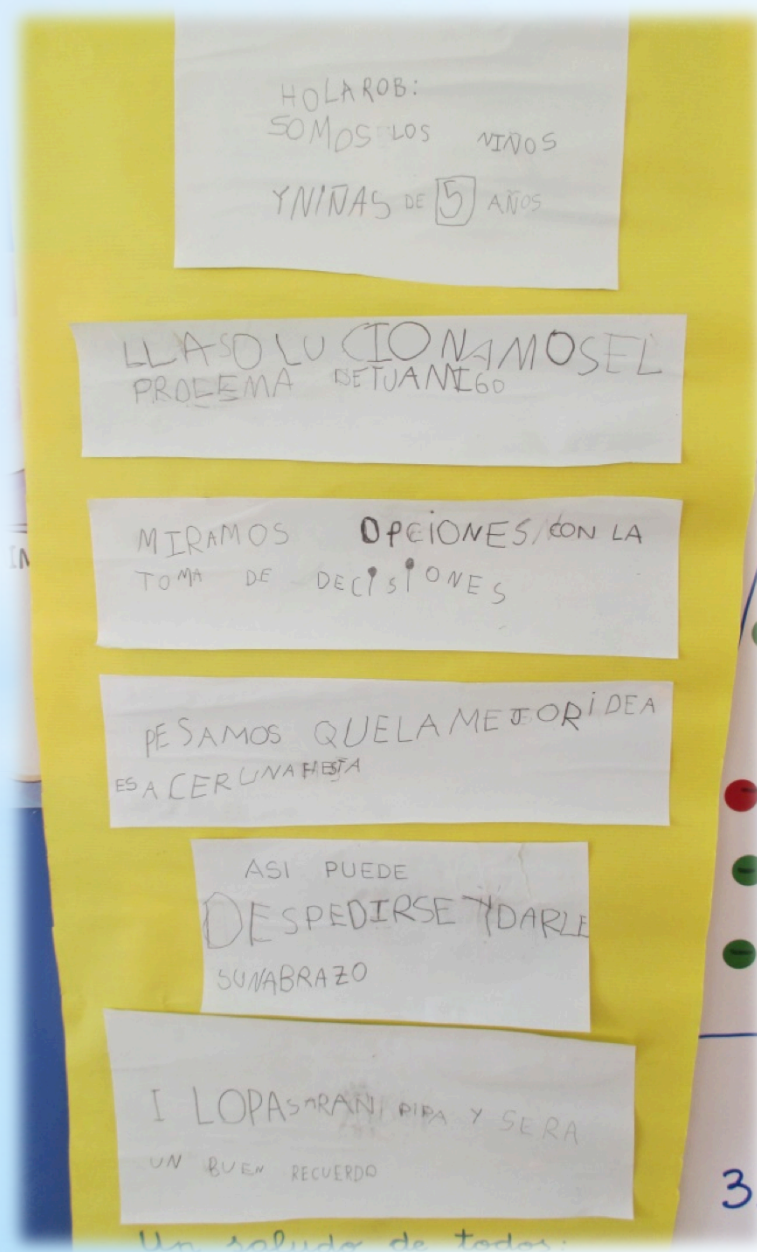 HOLAROB:
SOMOS LOS NIÑOS
YNIÑAS DE 5 AÑOS
LLASOLUCIONAMOSEL
PROLEMA DETUAMIGO
MIRAMOS OPCIONES CON LA
TOMA DE DECISIONES
PESAMOS QUELAMEJOR IDEA
ES ACER UNA FIESTA
ASI PUEDE
DESPEDIRSE YDARLE
SUNABRAZO
I LOPASARAN PIPA Y SERA
UN BUEN RECUERDO
Un saludo de todos.
3